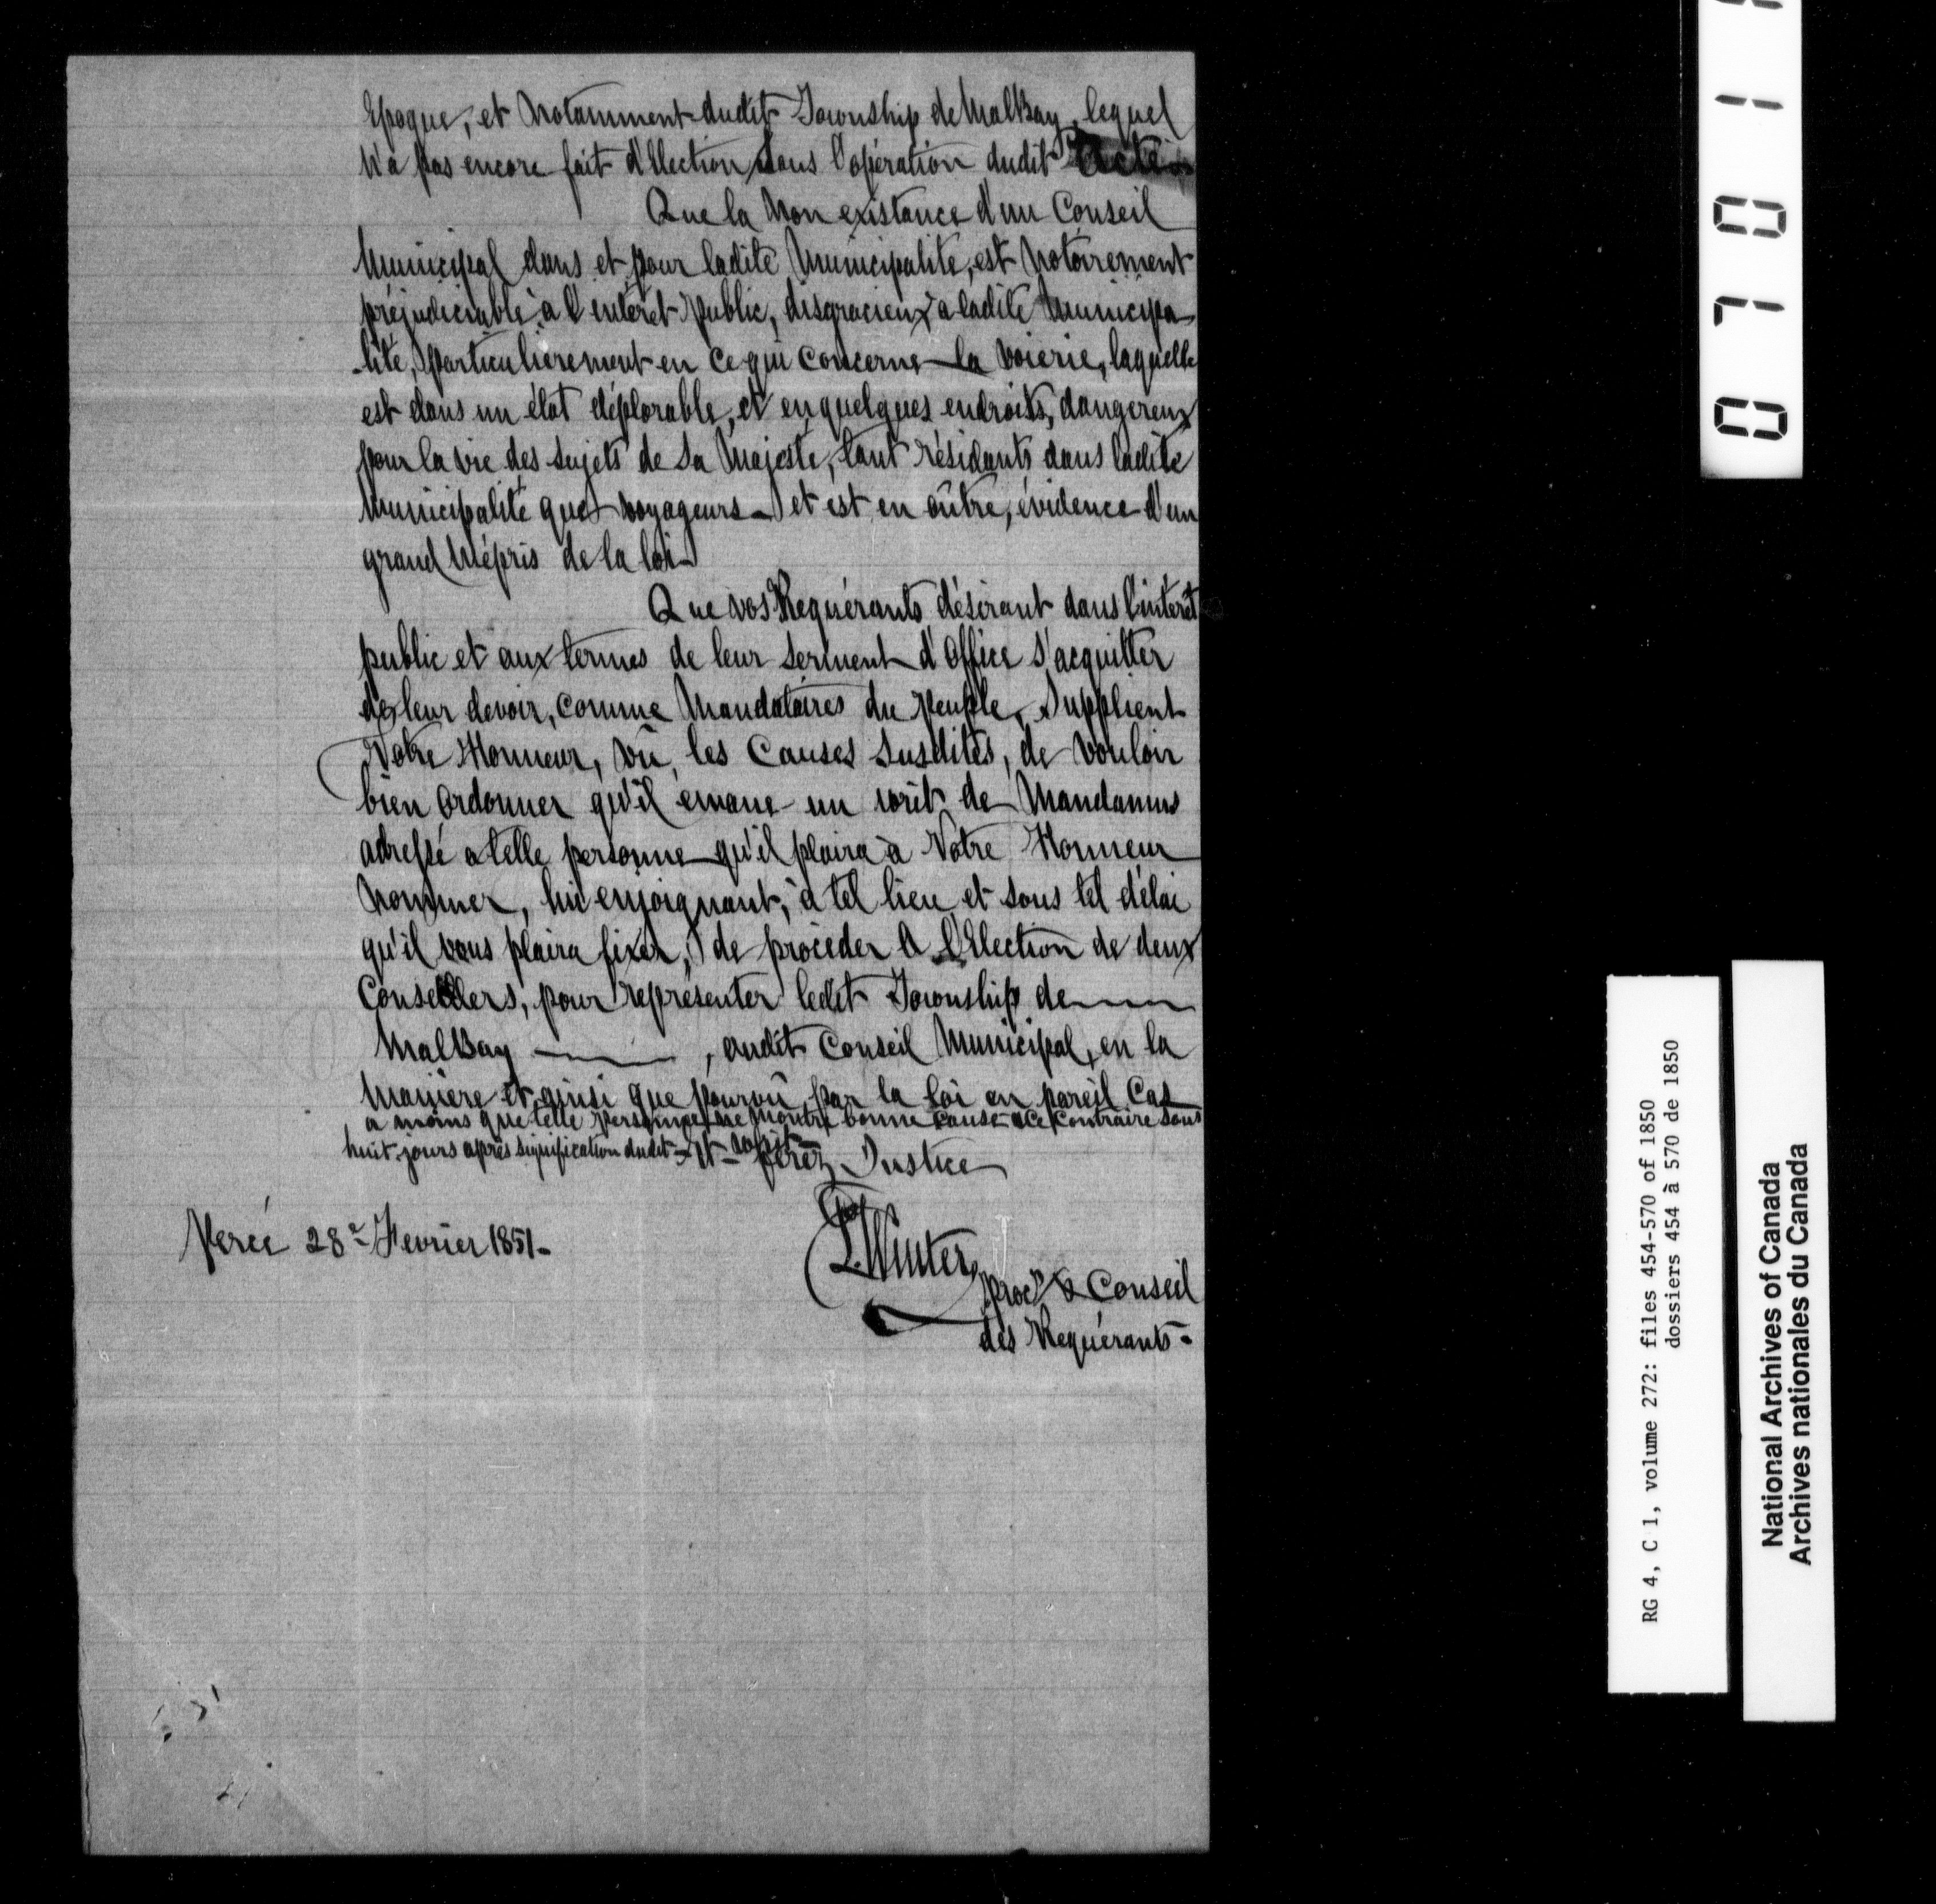 Epoque, et Notamment dudit Township de MalBay, lequel
N'a pas encore fait d'Election sous l'opération dudit Acte.
Que la Non existance d'un Conseil
Municipal dans et pour ladite Municipalité, est Notoirement
préjudiciable à l'intérêt public, disgracieux à ladite Municipa-
-lité, particulièrement en ce qui concerne la Voierie, laquelle
est dans un état déplorable, et en quelques endroits, dangereux
pour la vie des Sujets de Sa Majesté, tant résidants dans ladite
Municipalité que voyageurs - et est en oûtre, évidence d'un
grand Mépris de la loi -
Que vos Requérants désirant dans l'intérêt
public et aux termes de leur Serment d'Office S'acquitter
de leur devoir, comme Mandataires du Peuple, Supplient
Votre Honneur, vû, les Causes Susdites, de Vouloir
bien Ordonner qu'il emane un writ de Mandamus
adressé a telle personne qu'il plaira à Votre Honneur
Nommer, lui enjoignant, à tel lieu et sous tel délai
qu'il vous plaira fixer, de procéder à l'Election de deux
Conseillers, pour représenter ledit Township de
MalBay, audit Conseil Municipal, en la
Manière et ainsi que pourvû par la loi en pareil Cas
a moins que telle personne ne Montre bonne cause a ce Contraire sous
huit jours après signification dudit writ - Et ferez Justice
Percé 28e Fevrier 1851 -
P. Winter,
Procr & Conseil
des Requérants -
0701
RG 4, C 1, volume 272: files 454-570 of 1850
dossiers 454 à 570 de 1850
National Archives of Canada
Archives nationales du Canada